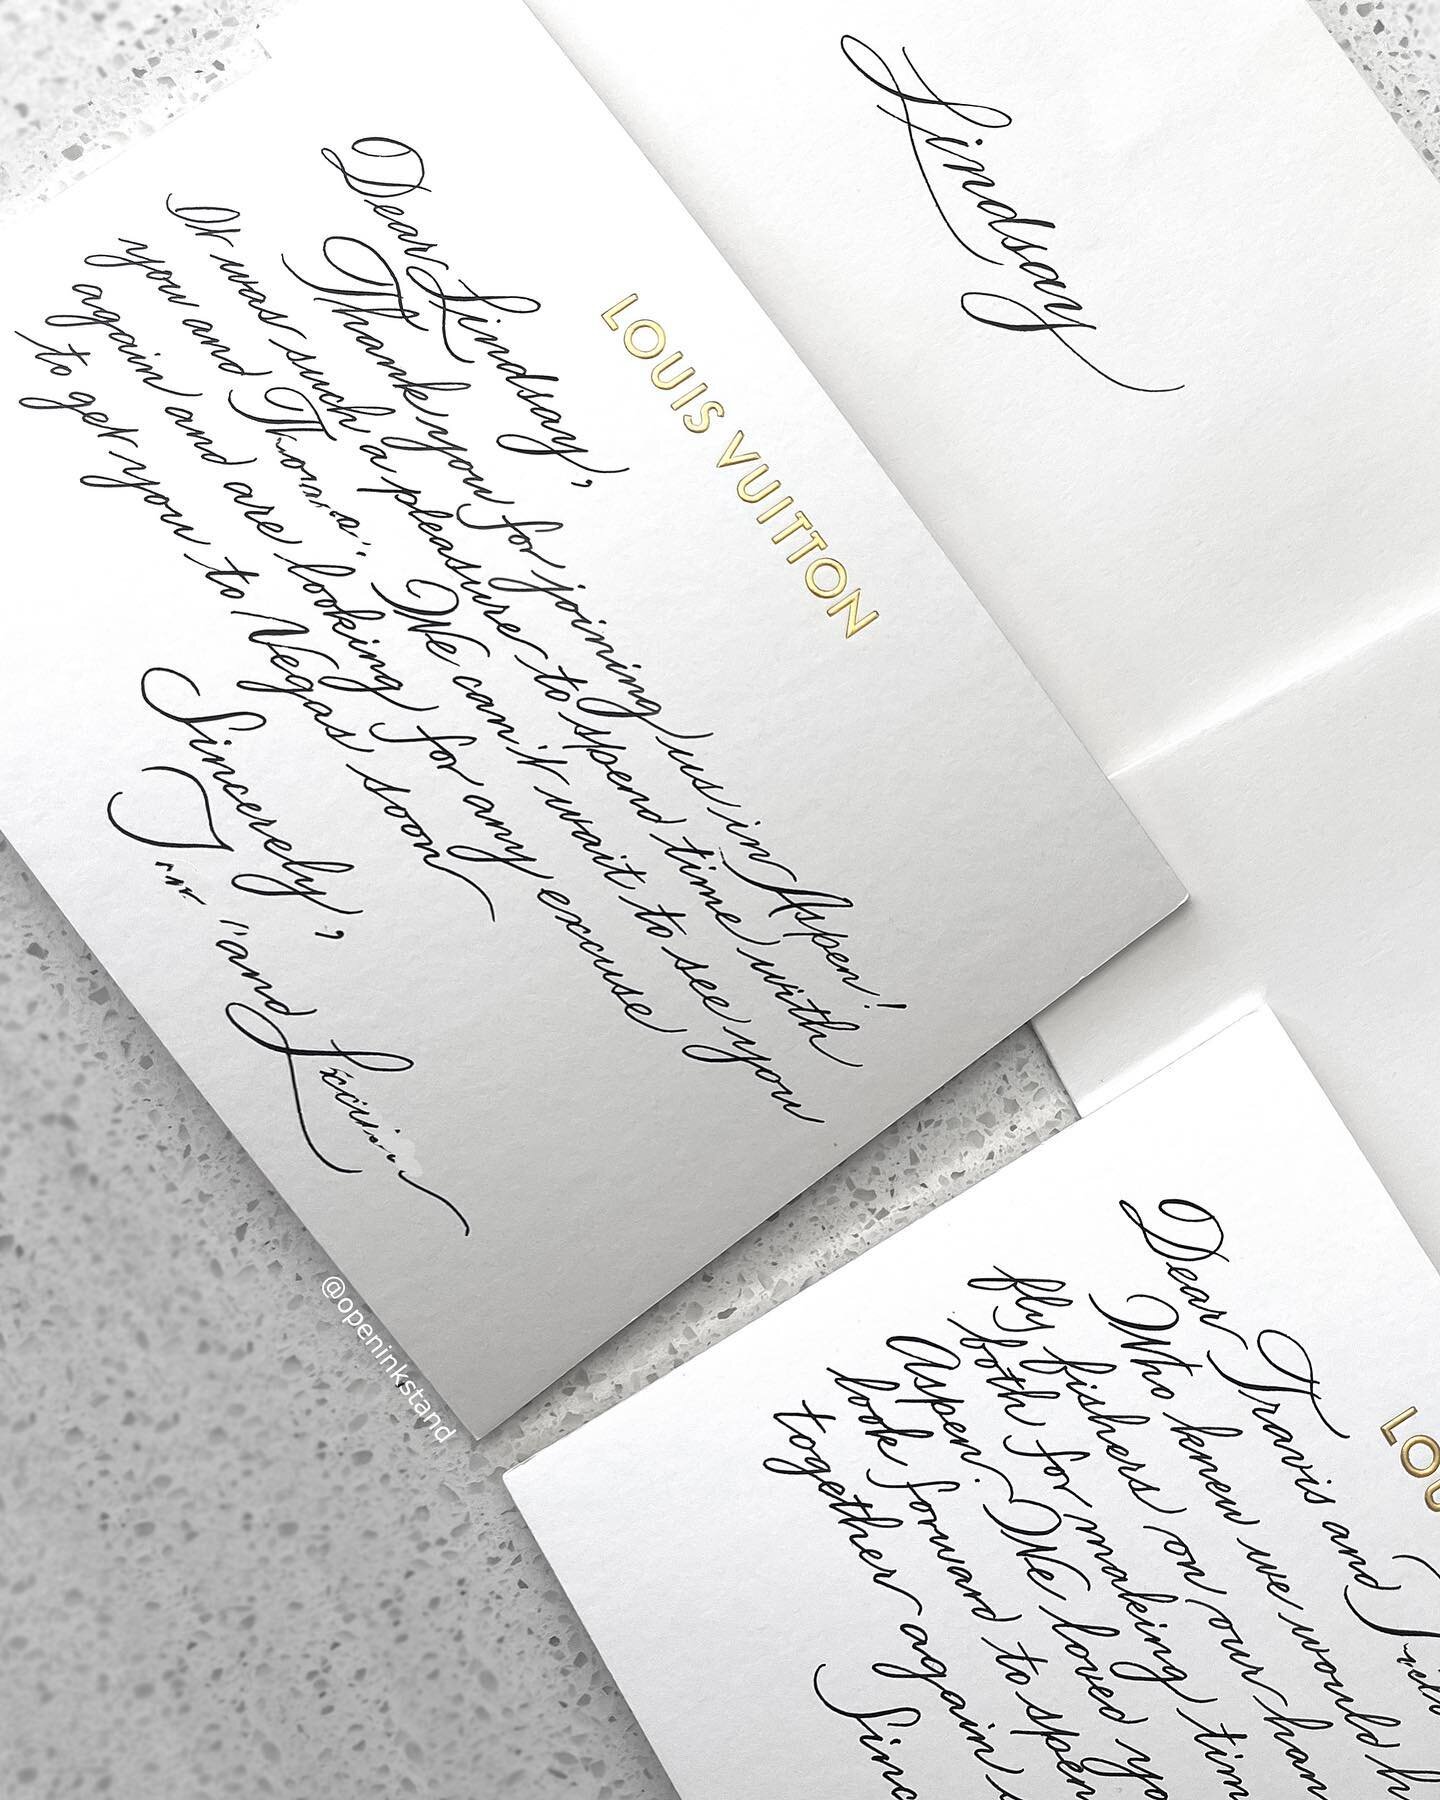 Lindsay
LOUIS VUITTON
Dear Lindsay,
Thank you for joining us in Aspen!
It was such a pleasure to spend time with
you and We can't wait to see you
again and are looking for any excuse
to get you to Vegas soon
Sincerely,
and
@openinkstand
LOU
Dear Travis and
Who knew we would h
fly fishers on our han
both for making tim
Aspen. We loved yo
look forward to spen
together again
Sinc